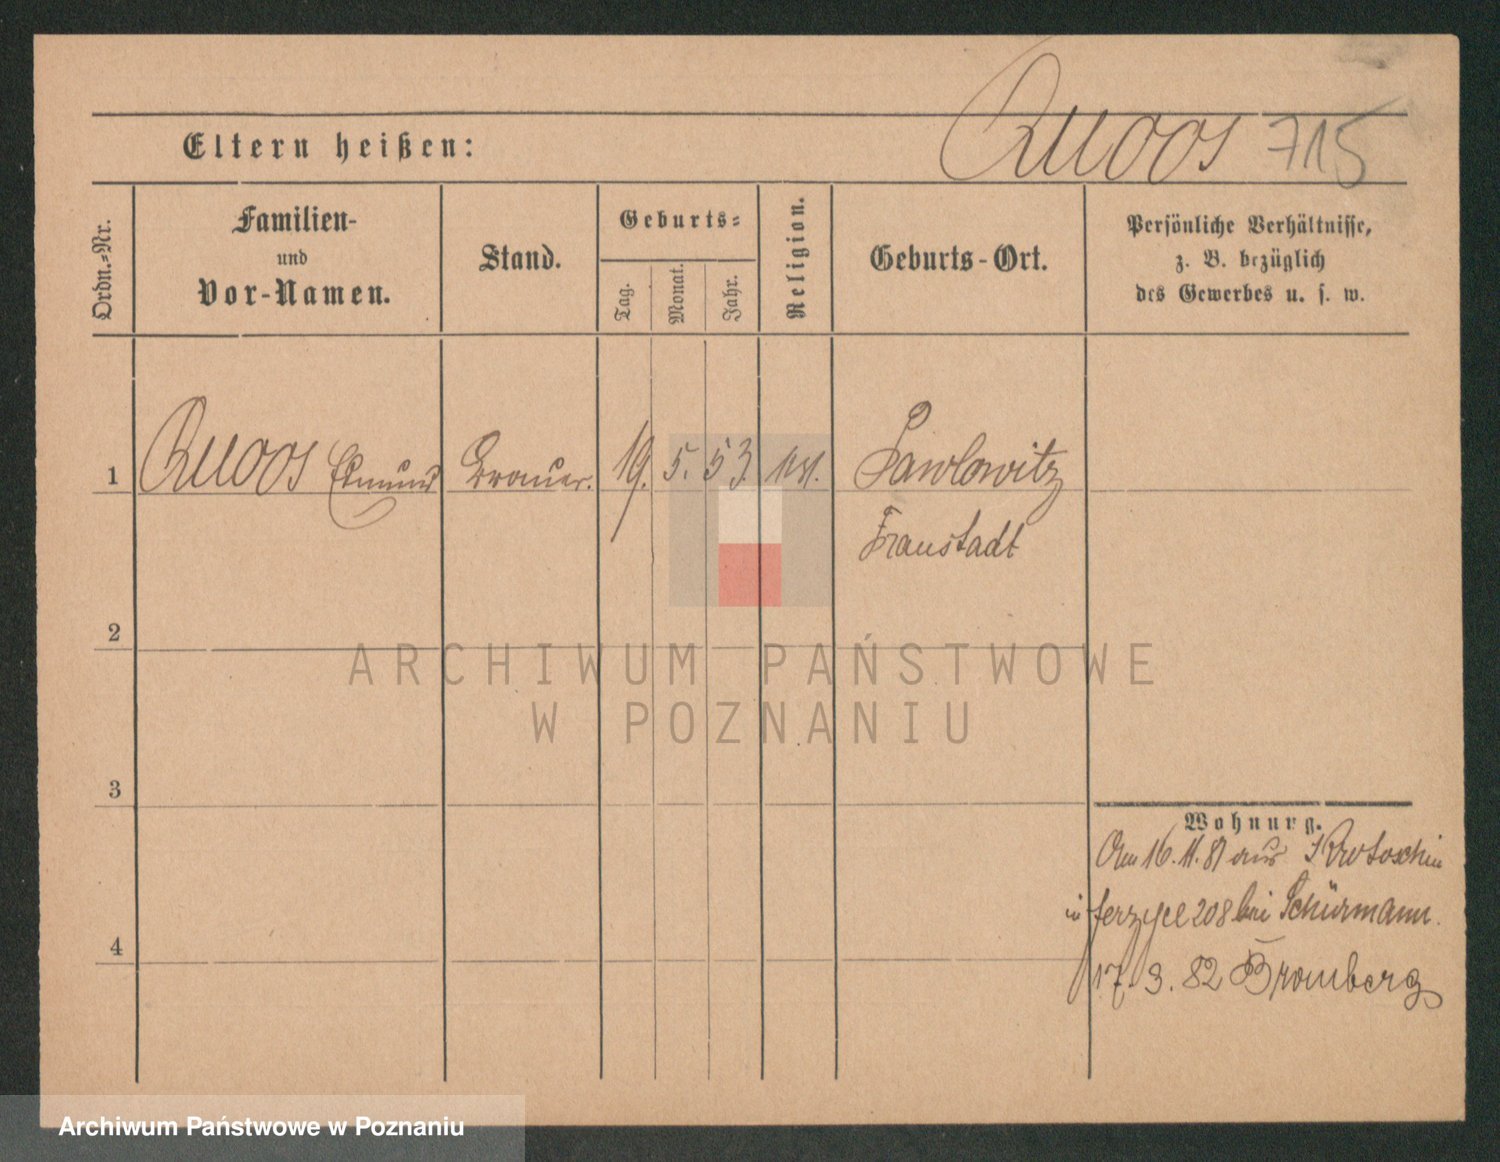 Quoos 715
Eltern heißen:
Ordn.-Nr.
Familien-
und
Vor-Namen.
Stand.
Geburts-
Tag.
Monat.
Jahr.
Religion.
Geburts-Ort.
Persönliche Verhältnisse,
z. B. bezüglich
des Gewerbes u. s. w.
1 Quoos Edmund Brauer. 19. 5. 53. Pawlowitz
Fraustadt
2
ARCHIWUM PAŃSTWOWE
W POZNANIU
3
Wohnung.
Am 16.11.81 aus Krotoschin
in 208 bei Schürmann.
4
17. 3. 82 Bromberg
Archiwum Państwowe w Poznaniu